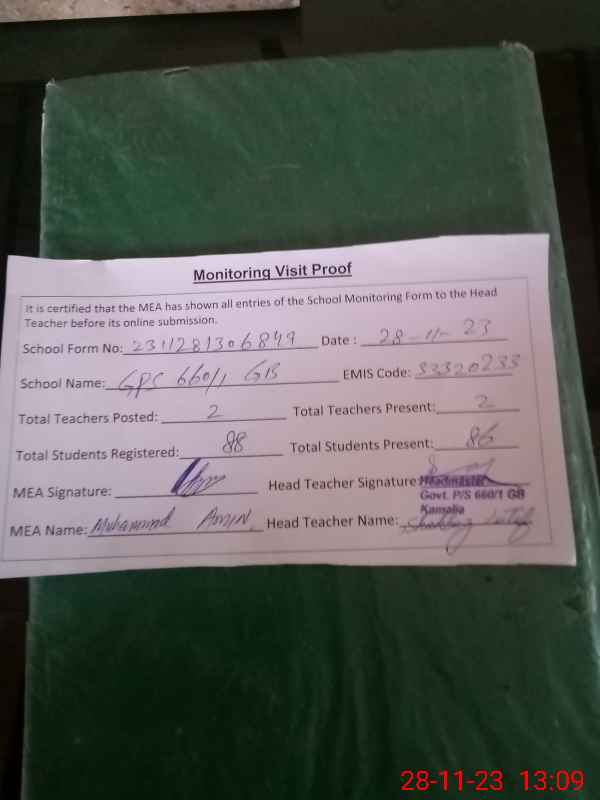 Monitoring Visit Proof
It is certified that the MEA has shown all entries of the School Monitoring Form to the Head
Teacher before its online submission.
School Form No: 2311281306849 Date : 28-11-23
School Name: GPS 660/1 GB EMIS Code: 33320233
Total Teachers Posted: 2 Total Teachers Present: 2
Total Students Registered: 88 Total Students Present: 86
MEA Signature: Head Teacher Signature:
Headmaster
Govt. P/S 660/1 GB
Kamalia
MEA Name: Muhammad Amin. Head Teacher Name:
28-11-23 13:09